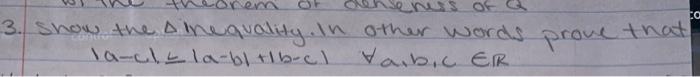 theorem of denseness of Q
3. Show the Δ inequality. In other words prove that
|a-c| ≤ |a-b| + |b-c| ∀a,b,c ∈ℝ